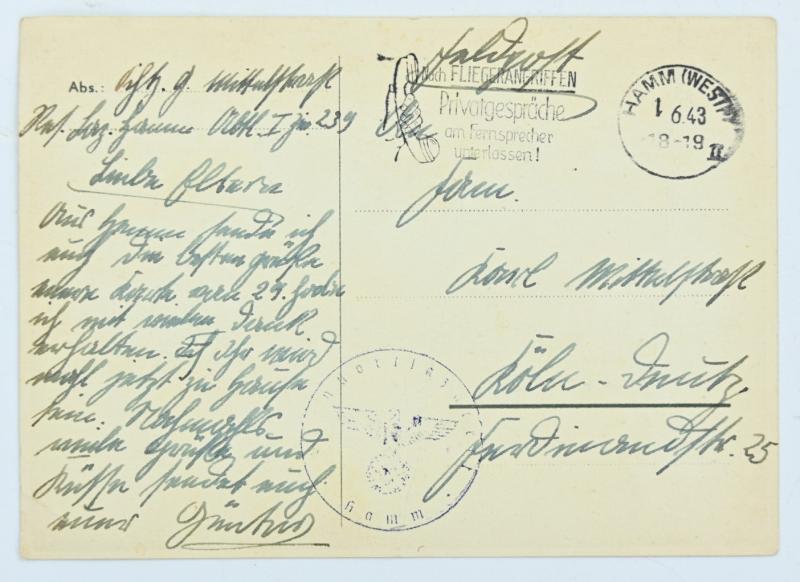 Abs.: Gftr. G. Mittelstraß
Res. Laz. Hamm Abtl. I Zi. 239
Liebe Eltern
Aus Hamm sende ich
euch die besten Grüße
eure Karte vom 29. habe
ich mit vielen Dank
erhalten. Ihr
wohl jetzt zu Hause
sein. Nochmals
viele Grüße und
Küsse sendet euch
euer Günter
Feldpost
Nach FLIEGERANGRIFFEN
Privatgespräche
am Fernsprecher
unterlassen!
HAMM (WESTF)
1.6.43
18-19
II
An
Fam.
Karl Mittelstraß
Köln-Deutz
Ferdinandstr. 25
Hamm